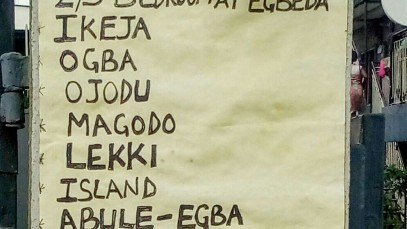 2/3 BEDROOM AT EGBEDA
IKEJA
OGBA
OJODU
MAGODO
LEKKI
ISLAND
ABULE-EGBA